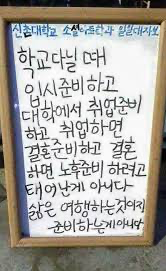 학교다닐 때
입시준비하고
대학에서 취업준비
하고, 취업하면
결혼준비하고 결혼
하면 노후준비 하려고
태어난게 아니다
삶은 여행하는것이지
준비하는게 아니다